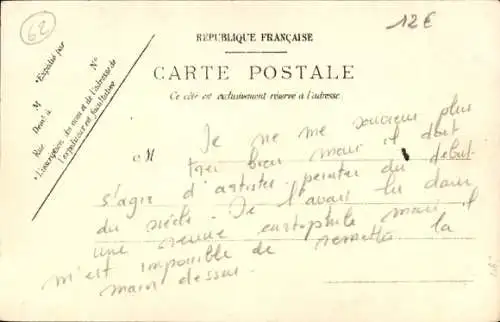 62
12€
RÉPUBLIQUE FRANÇAISE
CARTE POSTALE
Ce côté est exclusivement réservé à l'adresse.
*Expédié par
M N°
Demt à
Rue
*L'inscription du nom et de l'adresse de
l'expéditeur est facultative
M
Je ne me souviens plus
très bien mais il doit
s'agir d'artistes peintres du début
du siècle. Je l'avais lu dans
une revue cartophile mais il
m'est impossible de remettre la
main dessus.